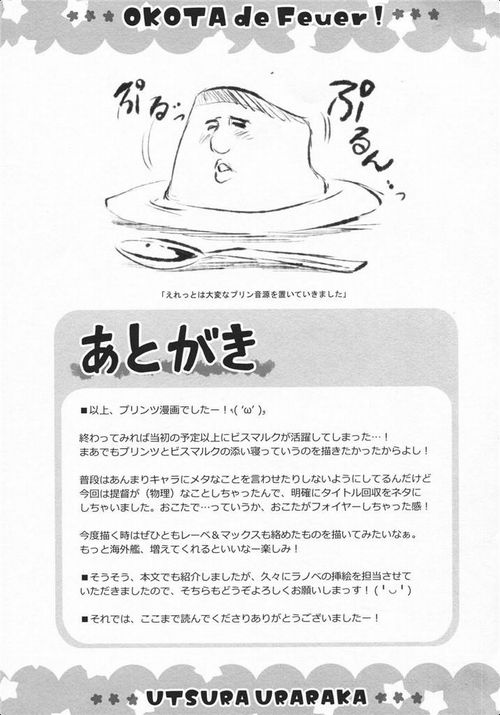 OKOTA de Feuer!
ぷるっ
ぷるん…っ
「えれっとは大変なプリン音源を置いていきました」
あとがき
■以上、プリンツ漫画でしたー!ヽ( 'ω' )。
終わってみれば当初の予定以上にビスマルクが活躍してしまった…!
まあでもプリンツとビスマルクの添い寝っていうのを描きたかったからよし!
普段はあんまりキャラにメタなことを言わせたりしないようにしてるんだけど
今回は提督が(物理)なことしちゃったんで、明確にタイトル回収をネタに
しちゃいました。おこたで…っていうか、おこたがフォイヤーしちゃった感!
今度描く時はぜひともレーベ&マックスも絡めたものを描いてみたいなぁ。
もっと海外艦、増えてくれるといいなー楽しみ!
■そうそう、本文でも紹介しましたが、久々にラノベの挿絵を担当させて
いただきましたので、そちらもどうぞよろしくお願いしまっす!( ╹◡╹ )
■それでは、ここまで読んでくださりありがとうございましたー!
UTSURA URARAKA